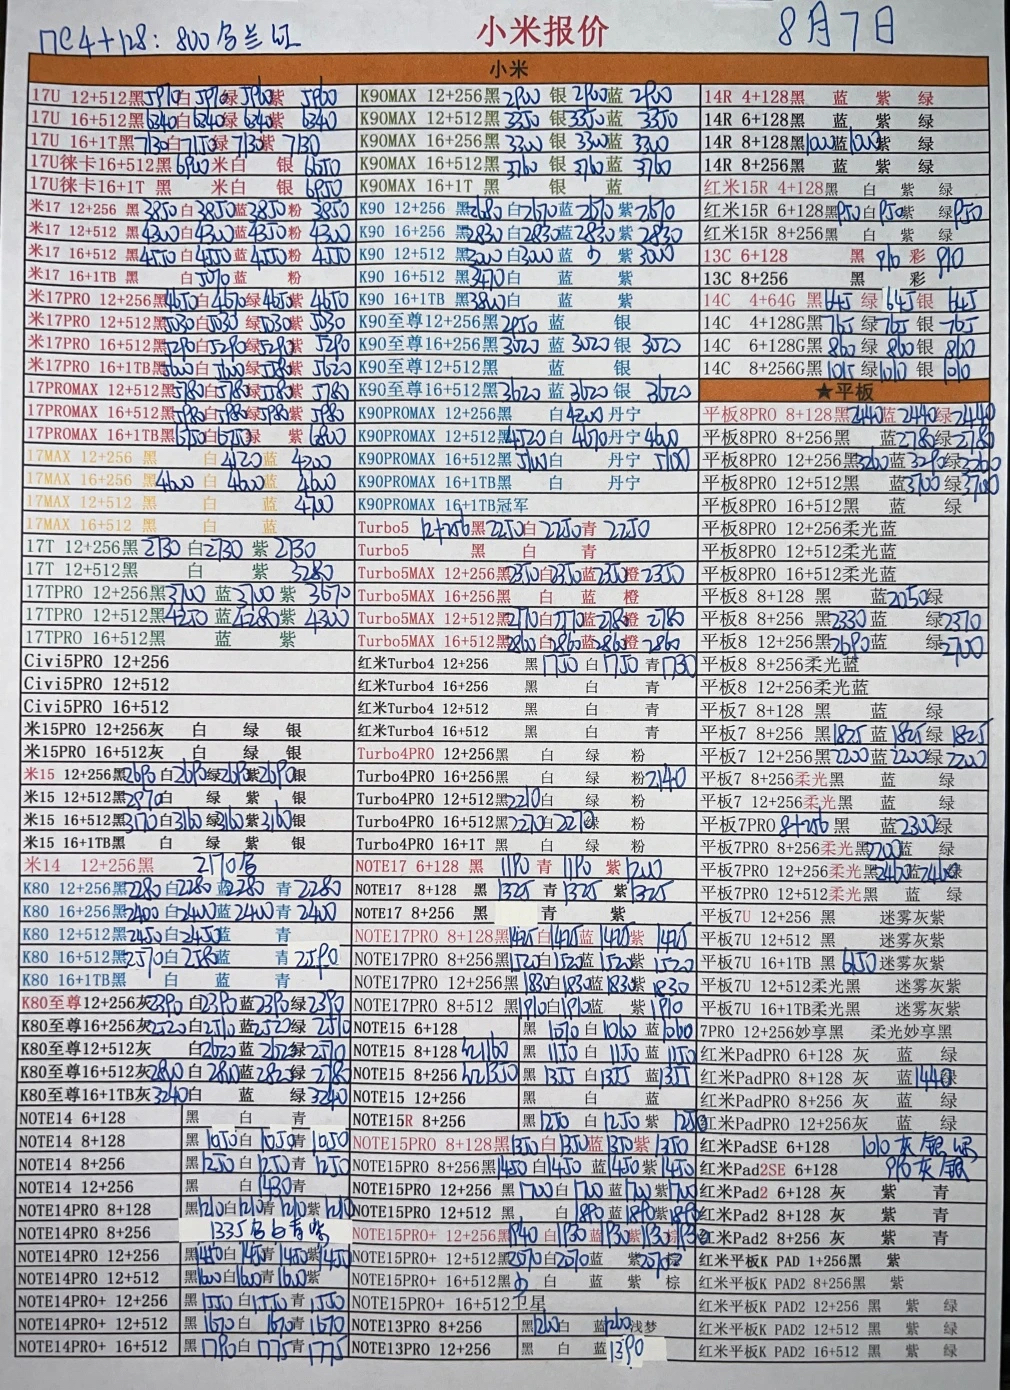 小米报价
8月7日
小米
17U 12+512黑5910白5910绿5960紫 5960
17U 16+512黑6340白6340绿6340紫 6340
17U 16+1T黑7130白7150绿7130紫 7130
17U徕卡16+512黑6900 米白 银6650
17U徕卡16+1T 黑 米白 银6950
米17 12+256 黑3850白3850蓝3850粉 3850
米17 12+512 黑4300白4300蓝4350粉 4300
米17 16+512 黑4550白4550蓝4550粉 4550
米17 16+1TB黑 白5070蓝 粉
米17PRO 12+256黑4650白4670绿4650紫 4650
米17PRO 12+512黑5030白5030绿5030紫 5030
米17PRO 16+512黑5290白5290绿5290紫 5290
米17PRO 16+1TB黑5600白5600绿5580紫 5620
17PROMAX 12+512黑5780白5780绿5780紫 5780
17PROMAX 16+512黑5980白5980绿5980紫 5980
17PROMAX 16+1TB黑6750白6750绿 紫 6800
17MAX 12+256 黑 白4120蓝 4200
17MAX 16+256 黑4600 白4600蓝 4600
17MAX 12+512 黑 白 蓝 4700
17MAX 16+512 黑 白 蓝
17T 12+256黑2730 白2730 紫 2730
17T 12+512黑 白 紫 3280
17TPRO 12+256黑3700 蓝3700 紫 3670
17TPRO 12+512黑4250 蓝4280紫 4300
17TPRO 16+512黑 蓝 紫
Civi5PRO 12+256
Civi5PRO 12+512
Civi5PRO 16+512
米15PRO 12+256灰 白 绿 银
米15PRO 16+512灰 白 绿 银
米15 12+256黑2690白2690绿2690紫2690银
米15 12+512黑2970白 绿 紫 银
米15 16+512黑3170白3160绿3160紫3160银
米15 16+1TB黑 白 绿 紫 银
米14 12+256黑 2170
K80 12+256黑2280白2280蓝2280 青 2280
K80 16+256黑2400白2400蓝2400青 2400
K80 12+512黑2450白2450蓝 青
K80 16+512黑2570白2580蓝 青2590
K80 16+1TB黑 白 蓝 青
K80至尊12+256灰2390白2390蓝2390绿2390
K80至尊16+256灰2520白2510蓝2520绿2510
K80至尊12+512灰 白2620蓝2625绿2570
K80至尊16+512灰2800白2810蓝2825绿2780
K80至尊16+1TB灰3240白 蓝 绿3240
NOTE14 6+128 黑 白 青
NOTE14 8+128 黑1050白1050青1050
NOTE14 8+256 黑1250白1250青1250
NOTE14 12+256 黑 白1430青
NOTE14PRO 8+128 黑1210白1210青1210紫1210
NOTE14PRO 8+256
NOTE14PRO 12+256 黑1450白1450青1450紫1450
NOTE14PRO 12+512 黑1600白1600青1600紫
NOTE14PRO+ 12+256 黑1550白1550青1550
NOTE14PRO+ 12+512 黑1670 白1670青1670
NOTE14PRO+ 16+512 黑1790白1775青1775
K90MAX 12+256黑2900 银2900蓝 2900
K90MAX 12+512黑3350 银3350蓝 3350
K90MAX 16+256黑3300 银3300蓝 3300
K90MAX 16+512黑3760 银3760蓝 3760
K90MAX 16+1T 黑 银 蓝
K90 12+256 黑2680白2670蓝2670紫2670
K90 16+256 黑2830白2830蓝2830 紫2830
K90 12+512 黑3000白3000蓝 紫3000
K90 16+512 黑3470白 蓝 紫
K90 16+1TB 黑3800白 蓝 紫
K90至尊12+256黑2950 蓝 银
K90至尊16+256黑3020 蓝3020银 3020
K90至尊12+512黑 蓝 银
K90至尊16+512黑3620 蓝3620银 3620
K90PROMAX 12+256黑 白4200丹宁
K90PROMAX 12+512黑4520 白4570丹宁4600
K90PROMAX 16+512黑5100 白 丹宁 5100
K90PROMAX 16+1TB黑 白 丹宁
K90PROMAX 16+1TB冠军
Turbo5 12+256黑2250白2250青 2250
Turbo5 黑 白 青
Turbo5MAX 12+256黑2350白2350蓝2350橙2350
Turbo5MAX 16+256黑 白 蓝 橙
Turbo5MAX 12+512黑2770白2770蓝2780橙 2780
Turbo5MAX 16+512黑2860白2860蓝2860橙 2860
红米Turbo4 12+256 黑1750白1750青1730
红米Turbo4 16+256 黑 白 青
红米Turbo4 12+512 黑 白 青
红米Turbo4 16+512 黑 白 青
Turbo4PRO 12+256黑 白 绿 粉
Turbo4PRO 16+256黑 白 绿 粉2140
Turbo4PRO 12+512黑2210白 绿 粉
Turbo4PRO 16+512黑2270白2270绿 粉
Turbo4PRO 16+1T黑 白 绿 粉
NOTE17 6+128 黑 1190 青 1190 紫1200
NOTE17 8+128 黑 1325青 1325 紫1325
NOTE17 8+256 黑 青 紫
NOTE17PRO 8+128黑1425白1425蓝1425紫 1425
NOTE17PRO 8+256黑1520白1520蓝1520紫 1520
NOTE17PRO 12+256黑1830白1830蓝1830紫1830
NOTE17PRO 8+512黑1910白1910蓝 紫 1910
NOTE15 6+128 黑 1070 白1060 蓝1060
NOTE15 8+128 黑 1150 白 1150 蓝 1150
NOTE15 8+256 黑 1355 白1355 蓝1355
NOTE15 12+256 黑 白 蓝
NOTE15R 8+256 黑 1250 白1250 紫 1250
NOTE15PRO 8+128黑1350白1350蓝1350紫1350
NOTE15PRO 8+256黑1450白1450蓝1450紫1450
NOTE15PRO 12+256 黑1700白1700蓝1700紫1700
NOTE15PRO 12+512 黑 白1890蓝1890紫1890
NOTE15PRO+ 12+256黑1940 白1930蓝1930紫1930棕1930
NOTE15PRO+ 12+512黑2070白2070蓝 紫2070棕
NOTE15PRO+ 16+512黑 白 蓝 紫 棕
NOTE15PRO+ 16+512卫星
NOTE13PRO 8+256 黑1260白 蓝1260浅梦
NOTE13PRO 12+256 黑 白 蓝1390
14R 4+128黑 蓝 紫 绿
14R 6+128黑 蓝 紫 绿
14R 8+128黑1000蓝1000紫 绿
14R 8+256黑 蓝 紫 绿
红米15R 4+128黑 白 紫 绿
红米15R 6+128黑950白950紫 绿950
红米15R 8+256黑 白 紫 绿
13C 6+128 黑 910 彩 910
13C 8+256 黑 彩
14C 4+64G 黑645绿645银 645
14C 4+128G黑765绿765银 765
14C 6+128G黑860绿 860银 860
14C 8+256G黑1015绿1010银 1010
★平板
平板8PRO 8+128黑2440蓝2440绿2440
平板8PRO 8+256 黑 蓝2780绿2780
平板8PRO 12+256黑3260蓝3290绿3260
平板8PRO 12+512黑 蓝3700绿3700
平板8PRO 16+512黑 蓝 绿
平板8PRO 12+256柔光蓝
平板8PRO 12+512柔光蓝
平板8PRO 16+512柔光蓝
平板8 8+128 黑 蓝2050绿
平板8 8+256 黑2330蓝 绿2370
平板8 12+256黑2690蓝 绿2700
平板8 8+256柔光蓝
平板8 12+256柔光蓝
平板7 8+128 黑 蓝 绿
平板7 8+256 黑1825蓝1825绿1825
平板7 12+256黑2200蓝2200绿2200
平板7 8+256柔光黑 蓝 绿
平板7 12+256柔光黑 蓝 绿
平板7PRO 8+256 黑 蓝2300绿
平板7PRO 8+256柔光黑2200蓝 绿
平板7PRO 12+256柔光黑2470蓝2460绿
平板7PRO 12+512柔光黑 蓝 绿
平板7U 12+256 黑 迷雾灰紫
平板7U 12+512 黑 迷雾灰紫
平板7U 16+1TB 黑 6150迷雾灰紫
平板7U 12+512柔光黑 迷雾灰紫
平板7U 16+1TB柔光黑 迷雾灰紫
7PRO 12+256妙享黑 柔光妙享黑
红米PadPRO 6+128 灰 蓝 绿
红米PadPRO 8+128 灰 蓝1440绿
红米PadPRO 8+256灰 蓝 绿
红米PadPRO 12+256灰 蓝 绿
红米PadSE 6+128 1010 灰 银
红米Pad2SE 6+128 910灰 银
红米Pad2 6+128 灰 紫 青
红米Pad2 8+128 灰 紫 青
红米Pad2 8+256 灰 紫 青
红米平板K PAD 1+256黑 紫
红米平板K PAD2 8+256黑 紫
红米平板K PAD2 12+256 黑 紫 绿
红米平板K PAD2 12+512 黑 紫 绿
红米平板K PAD2 16+512 黑 紫 绿